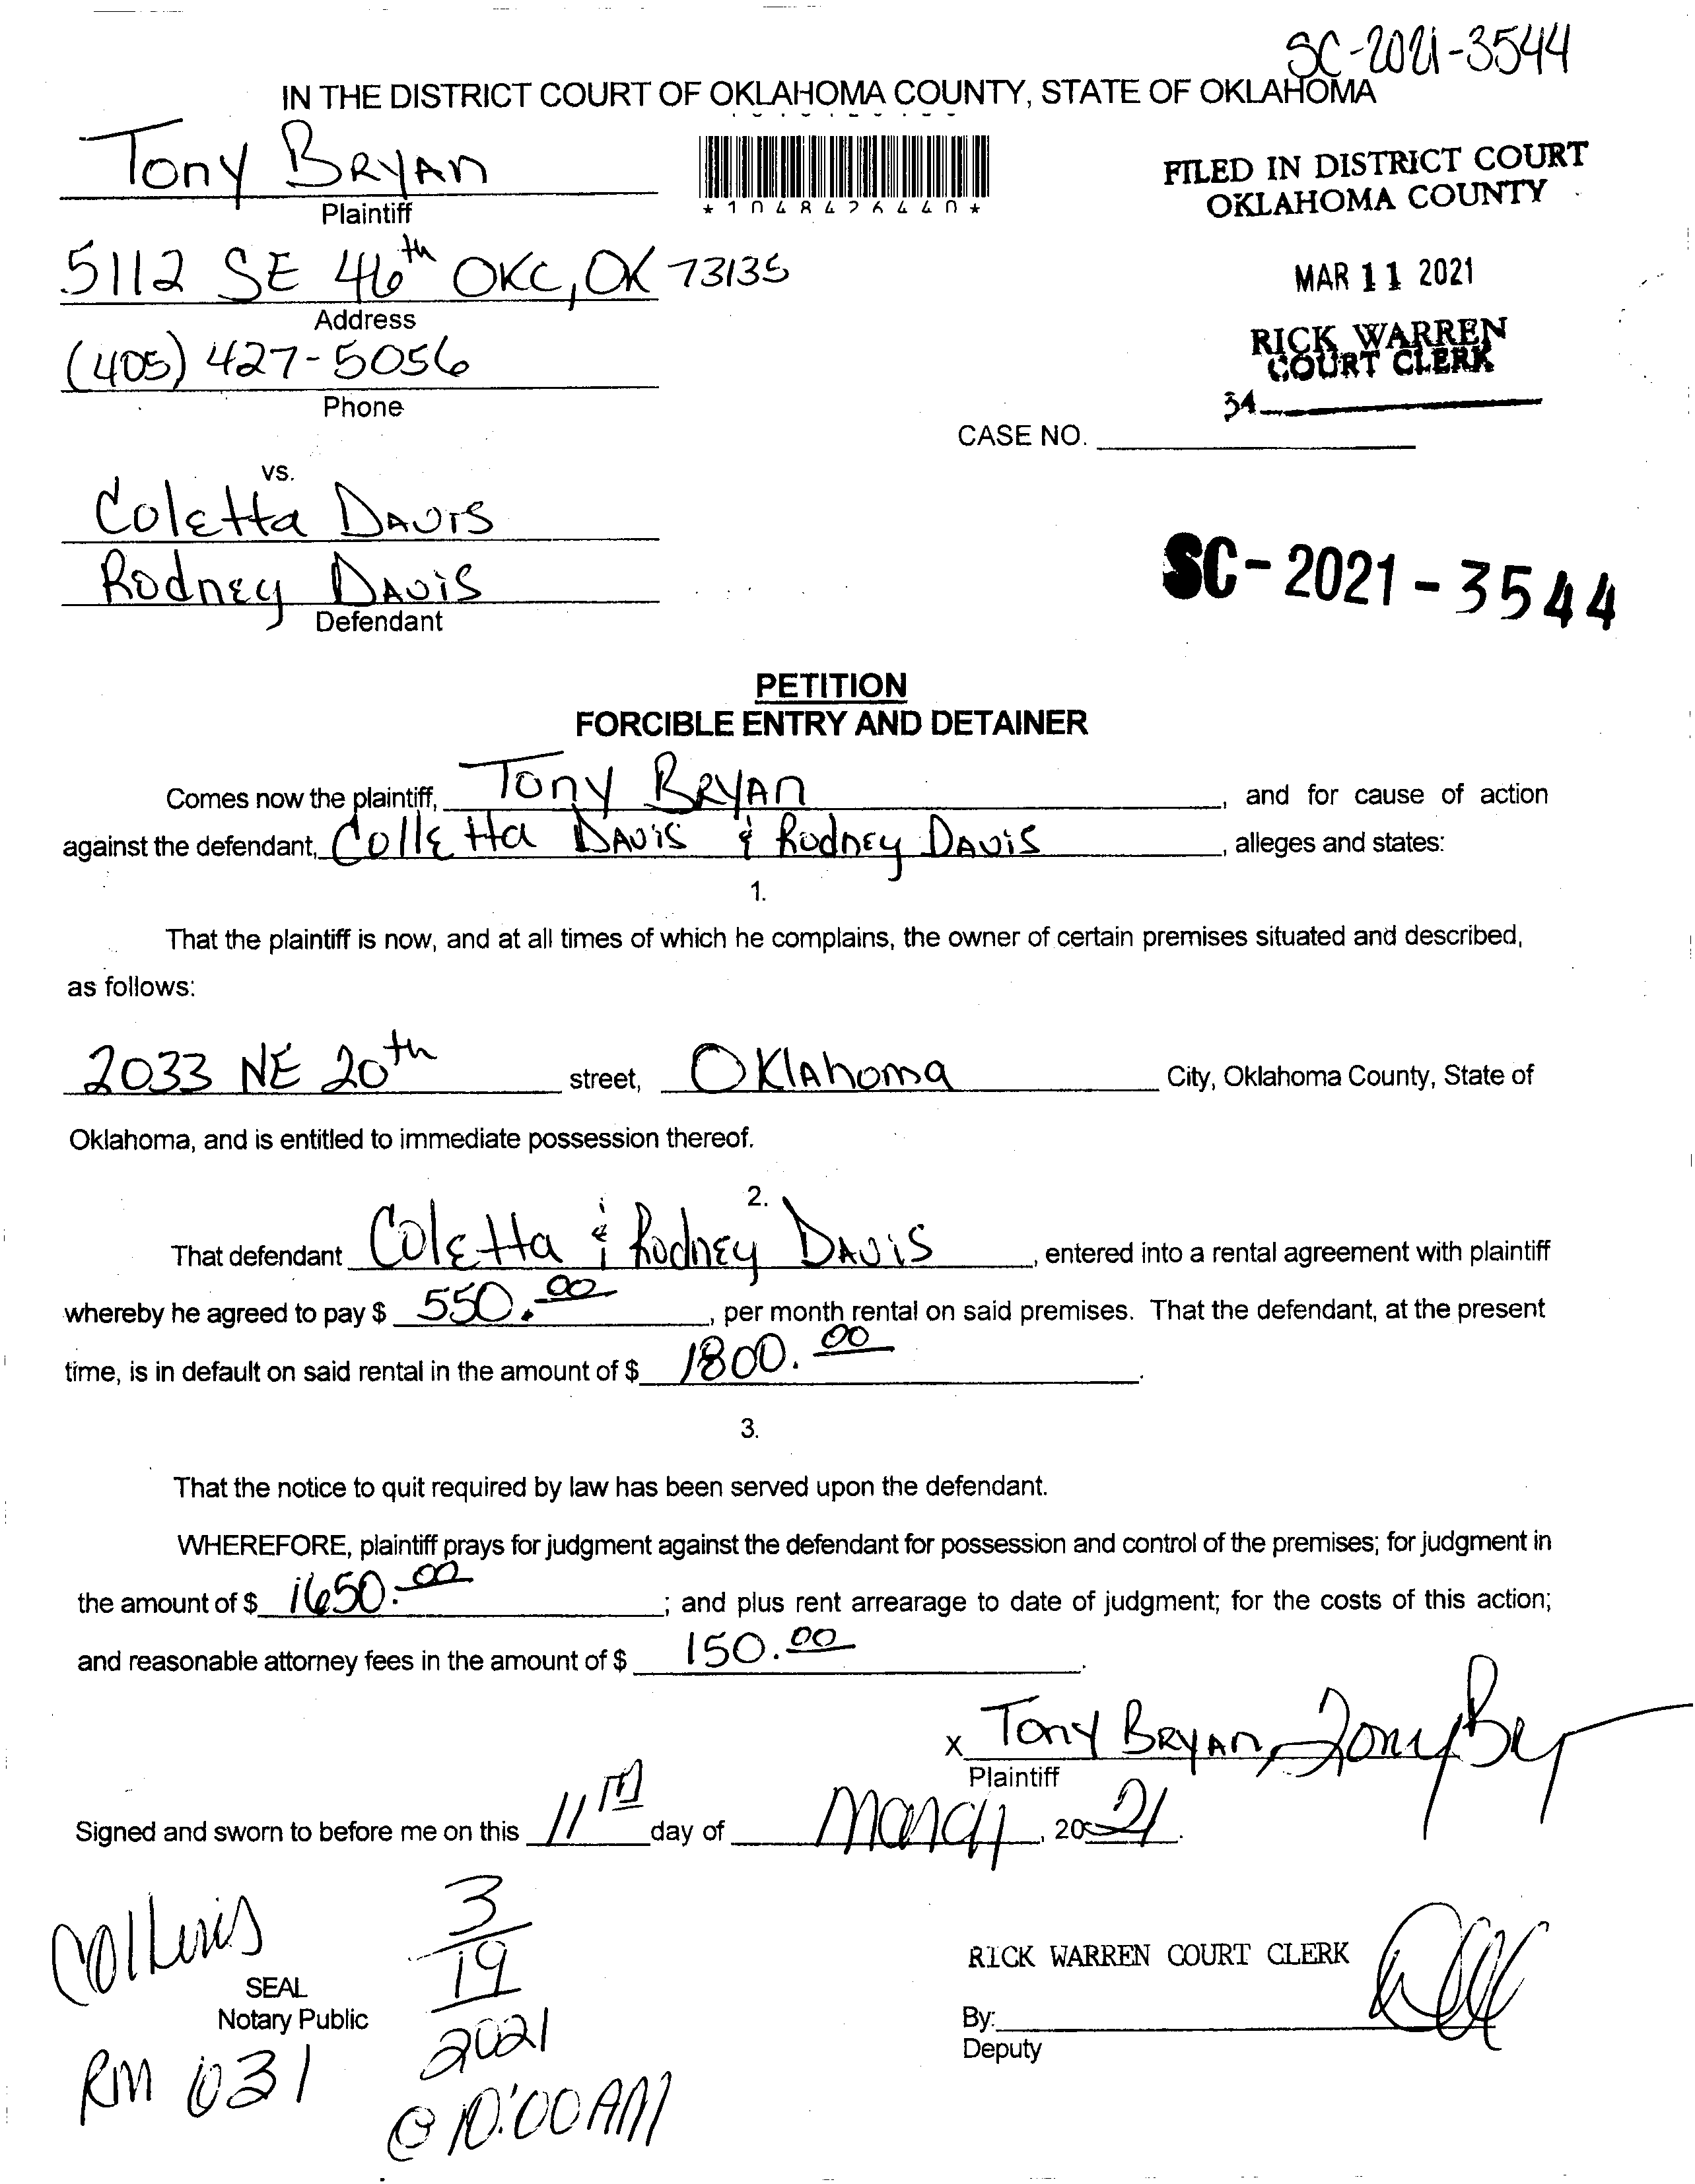 SC-2021-3544
IN THE DISTRICT COURT OF OKLAHOMA COUNTY, STATE OF OKLAHOMA
Tony BRYAN
Plaintiff
*1048426440*
FILED IN DISTRICT COURT
OKLAHOMA COUNTY
5112 SE 46th OKC, OK 73135
Address
MAR 11 2021
(405) 427-5056
Phone
RICK WARREN
COURT CLERK
34
CASE NO.
vs.
Coletta DAVIS
Rodney DAVIS
Defendant
SC-2021-3544
PETITION
FORCIBLE ENTRY AND DETAINER
Comes now the plaintiff, Tony BRYAN, and for cause of action
against the defendant, Colletta DAVIS & Rodney DAVIS, alleges and states:
1.
That the plaintiff is now, and at all times of which he complains, the owner of certain premises situated and described,
as follows:
2033 NE 20th street, OKlahoma City, Oklahoma County, State of
Oklahoma, and is entitled to immediate possession thereof.
2.
That defendant Coletta & Rodney DAVIS, entered into a rental agreement with plaintiff
whereby he agreed to pay $ 550.00, per month rental on said premises. That the defendant, at the present
time, is in default on said rental in the amount of $ 1800.00.
3.
That the notice to quit required by law has been served upon the defendant.
WHEREFORE, plaintiff prays for judgment against the defendant for possession and control of the premises; for judgment in
the amount of $ 1650.00; and plus rent arrearage to date of judgment; for the costs of this action;
and reasonable attorney fees in the amount of $ 150.00.
x Tony BRYAN, Tony Bry
Plaintiff
Signed and sworn to before me on this 11th day of March, 2021.
SEAL
Notary Public
RM 031
3/19
2021
@ 10:00 AM
RICK WARREN COURT CLERK
By:
Deputy